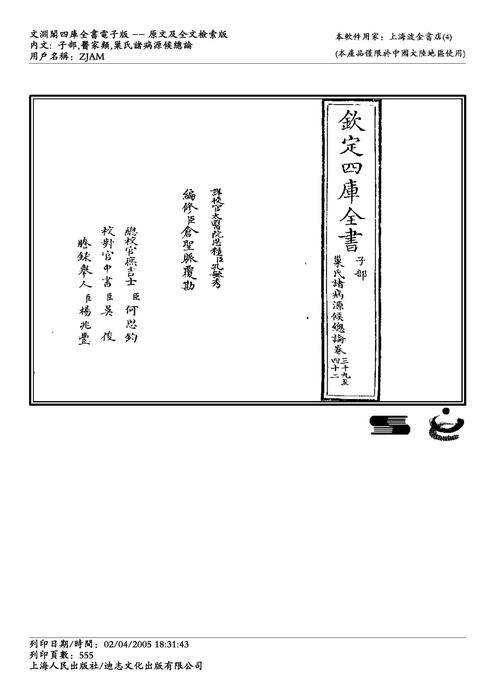 文淵閣四庫全書電子版 -- 原文及全文檢索版
内文: 子部,醫家類,巢氏諸病源候總論
用戶名稱: ZJAM
本軟件用家: 上海波金書店(4)
(本產品僅限於中國大陸地區使用)
欽定四庫全書
子部
巢氏諸病源候總論卷三十九至四十二
詳校官太醫院
編修臣倉聖脈覆勘
總校官庶吉士臣何思鈞
校對官中書臣吳俊
謄錄舉人臣楊兆豐
列印日期/時間: 02/04/2005 18:31:43
列印頁數: 555
上海人民出版社/迪志文化出版有限公司